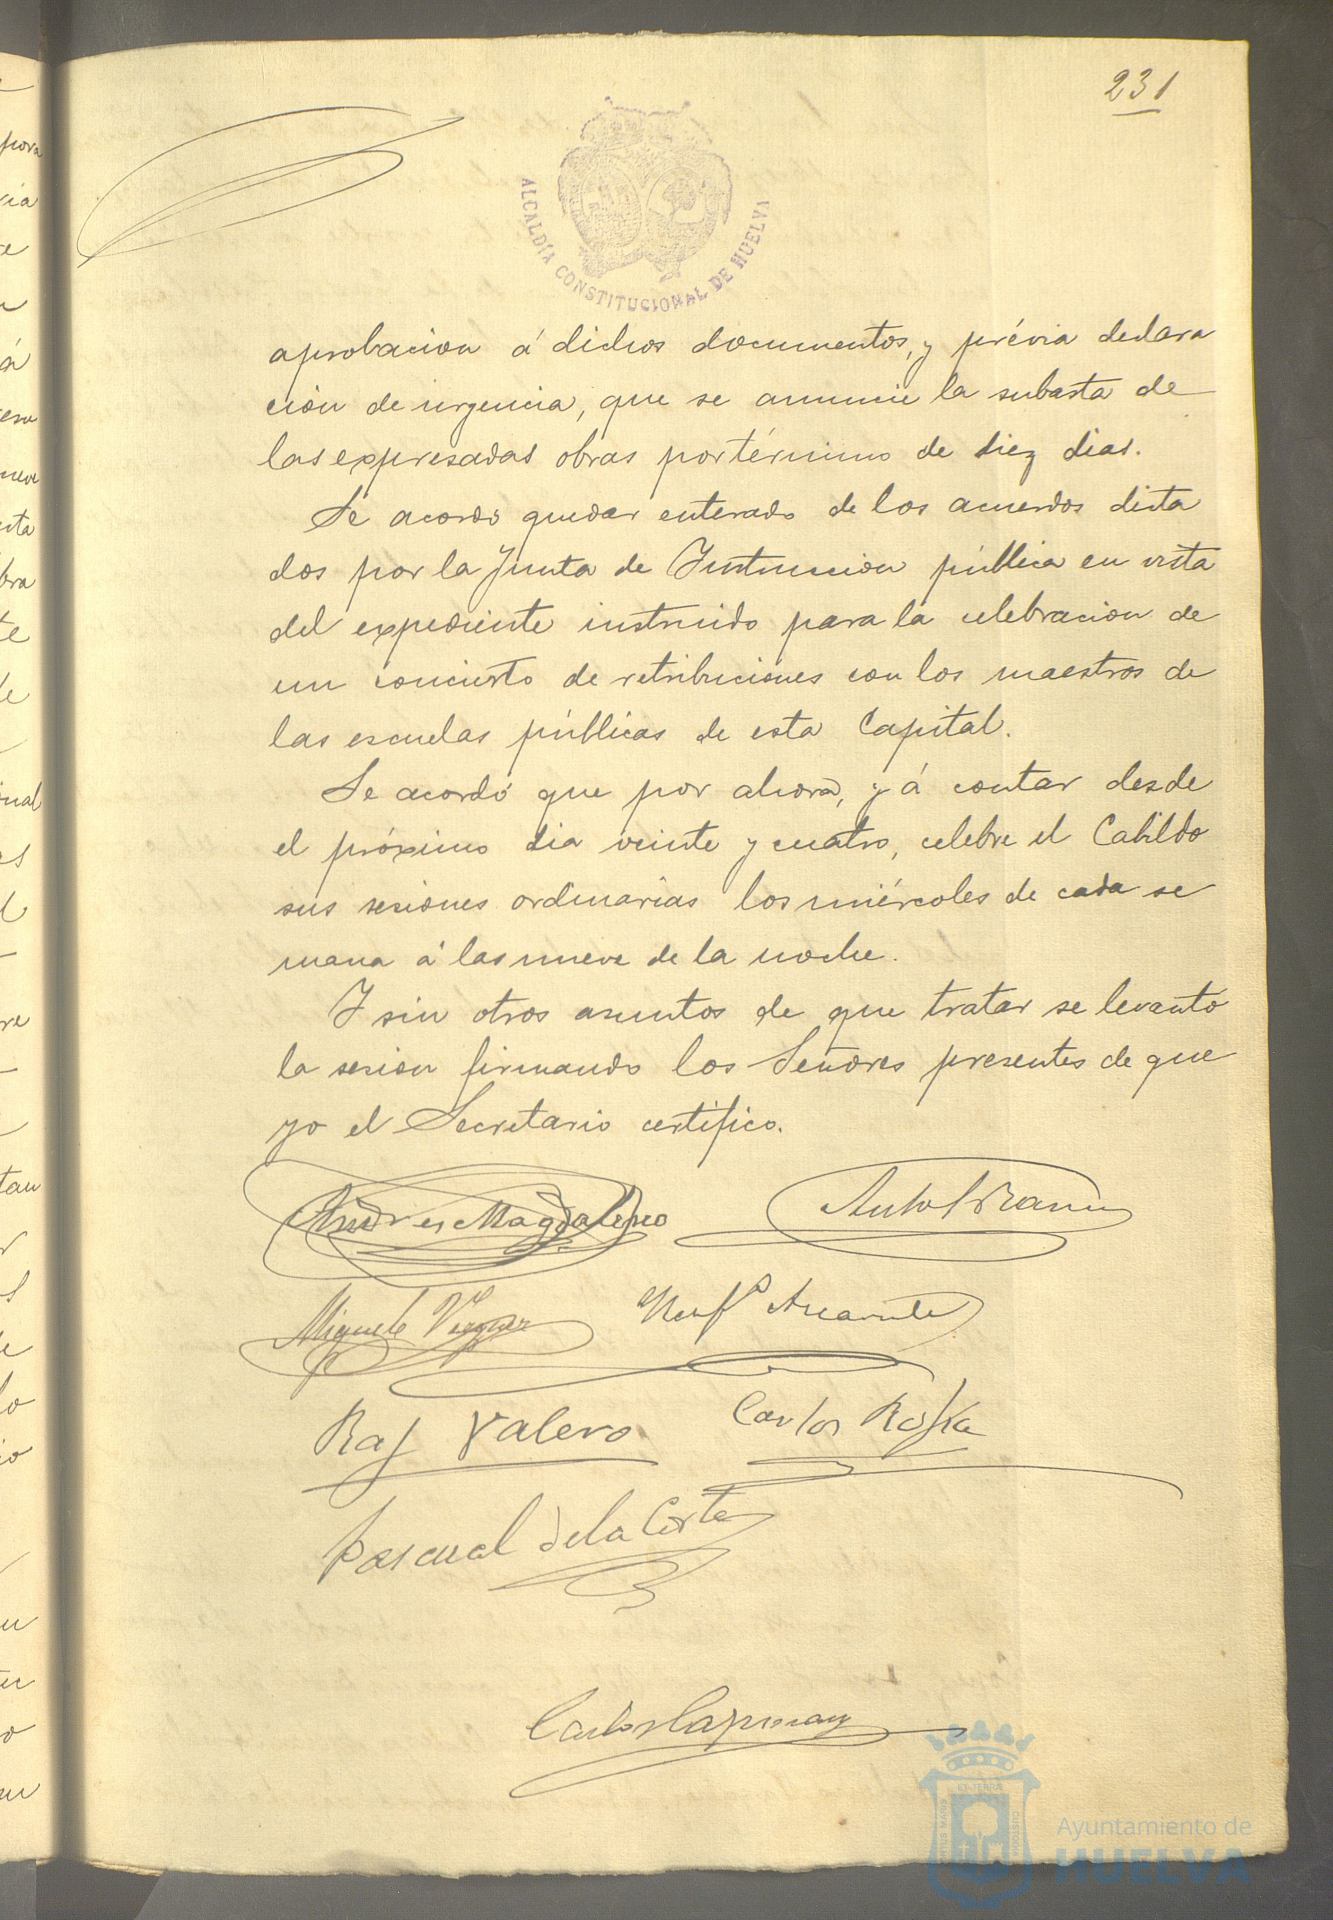 231
ALCALDÍA CONSTITUCIONAL DE HUELVA
aprobacion á dichos documentos, y prévia declara
ción de urgencia, que se anuncie la subasta de
las expresadas obras por término de diez dias.
Se acordó quedar enterado de los acuerdos dicta
dos por la Junta de Instruccion pública en vista
del expediente instruido para la celebracion de
un concierto de retribuciones con los maestros de
las escuelas públicas de esta Capital.
Se acordó que por ahora, y á contar desde
el próximo dia veinte y cuatro, celebre el Cabildo
sus sesiones ordinarias los miércoles de cada se
mana á las nueve de la noche.
Y sin otros asuntos de que tratar se levantó
la sesion firmando los Señores presentes de que
yo el Secretario certifico.
Andres Magdaleno
Miguel
Raf Valero
Carlos
Pascual de la Corte
Carlos
Ayuntamiento de
HUELVA